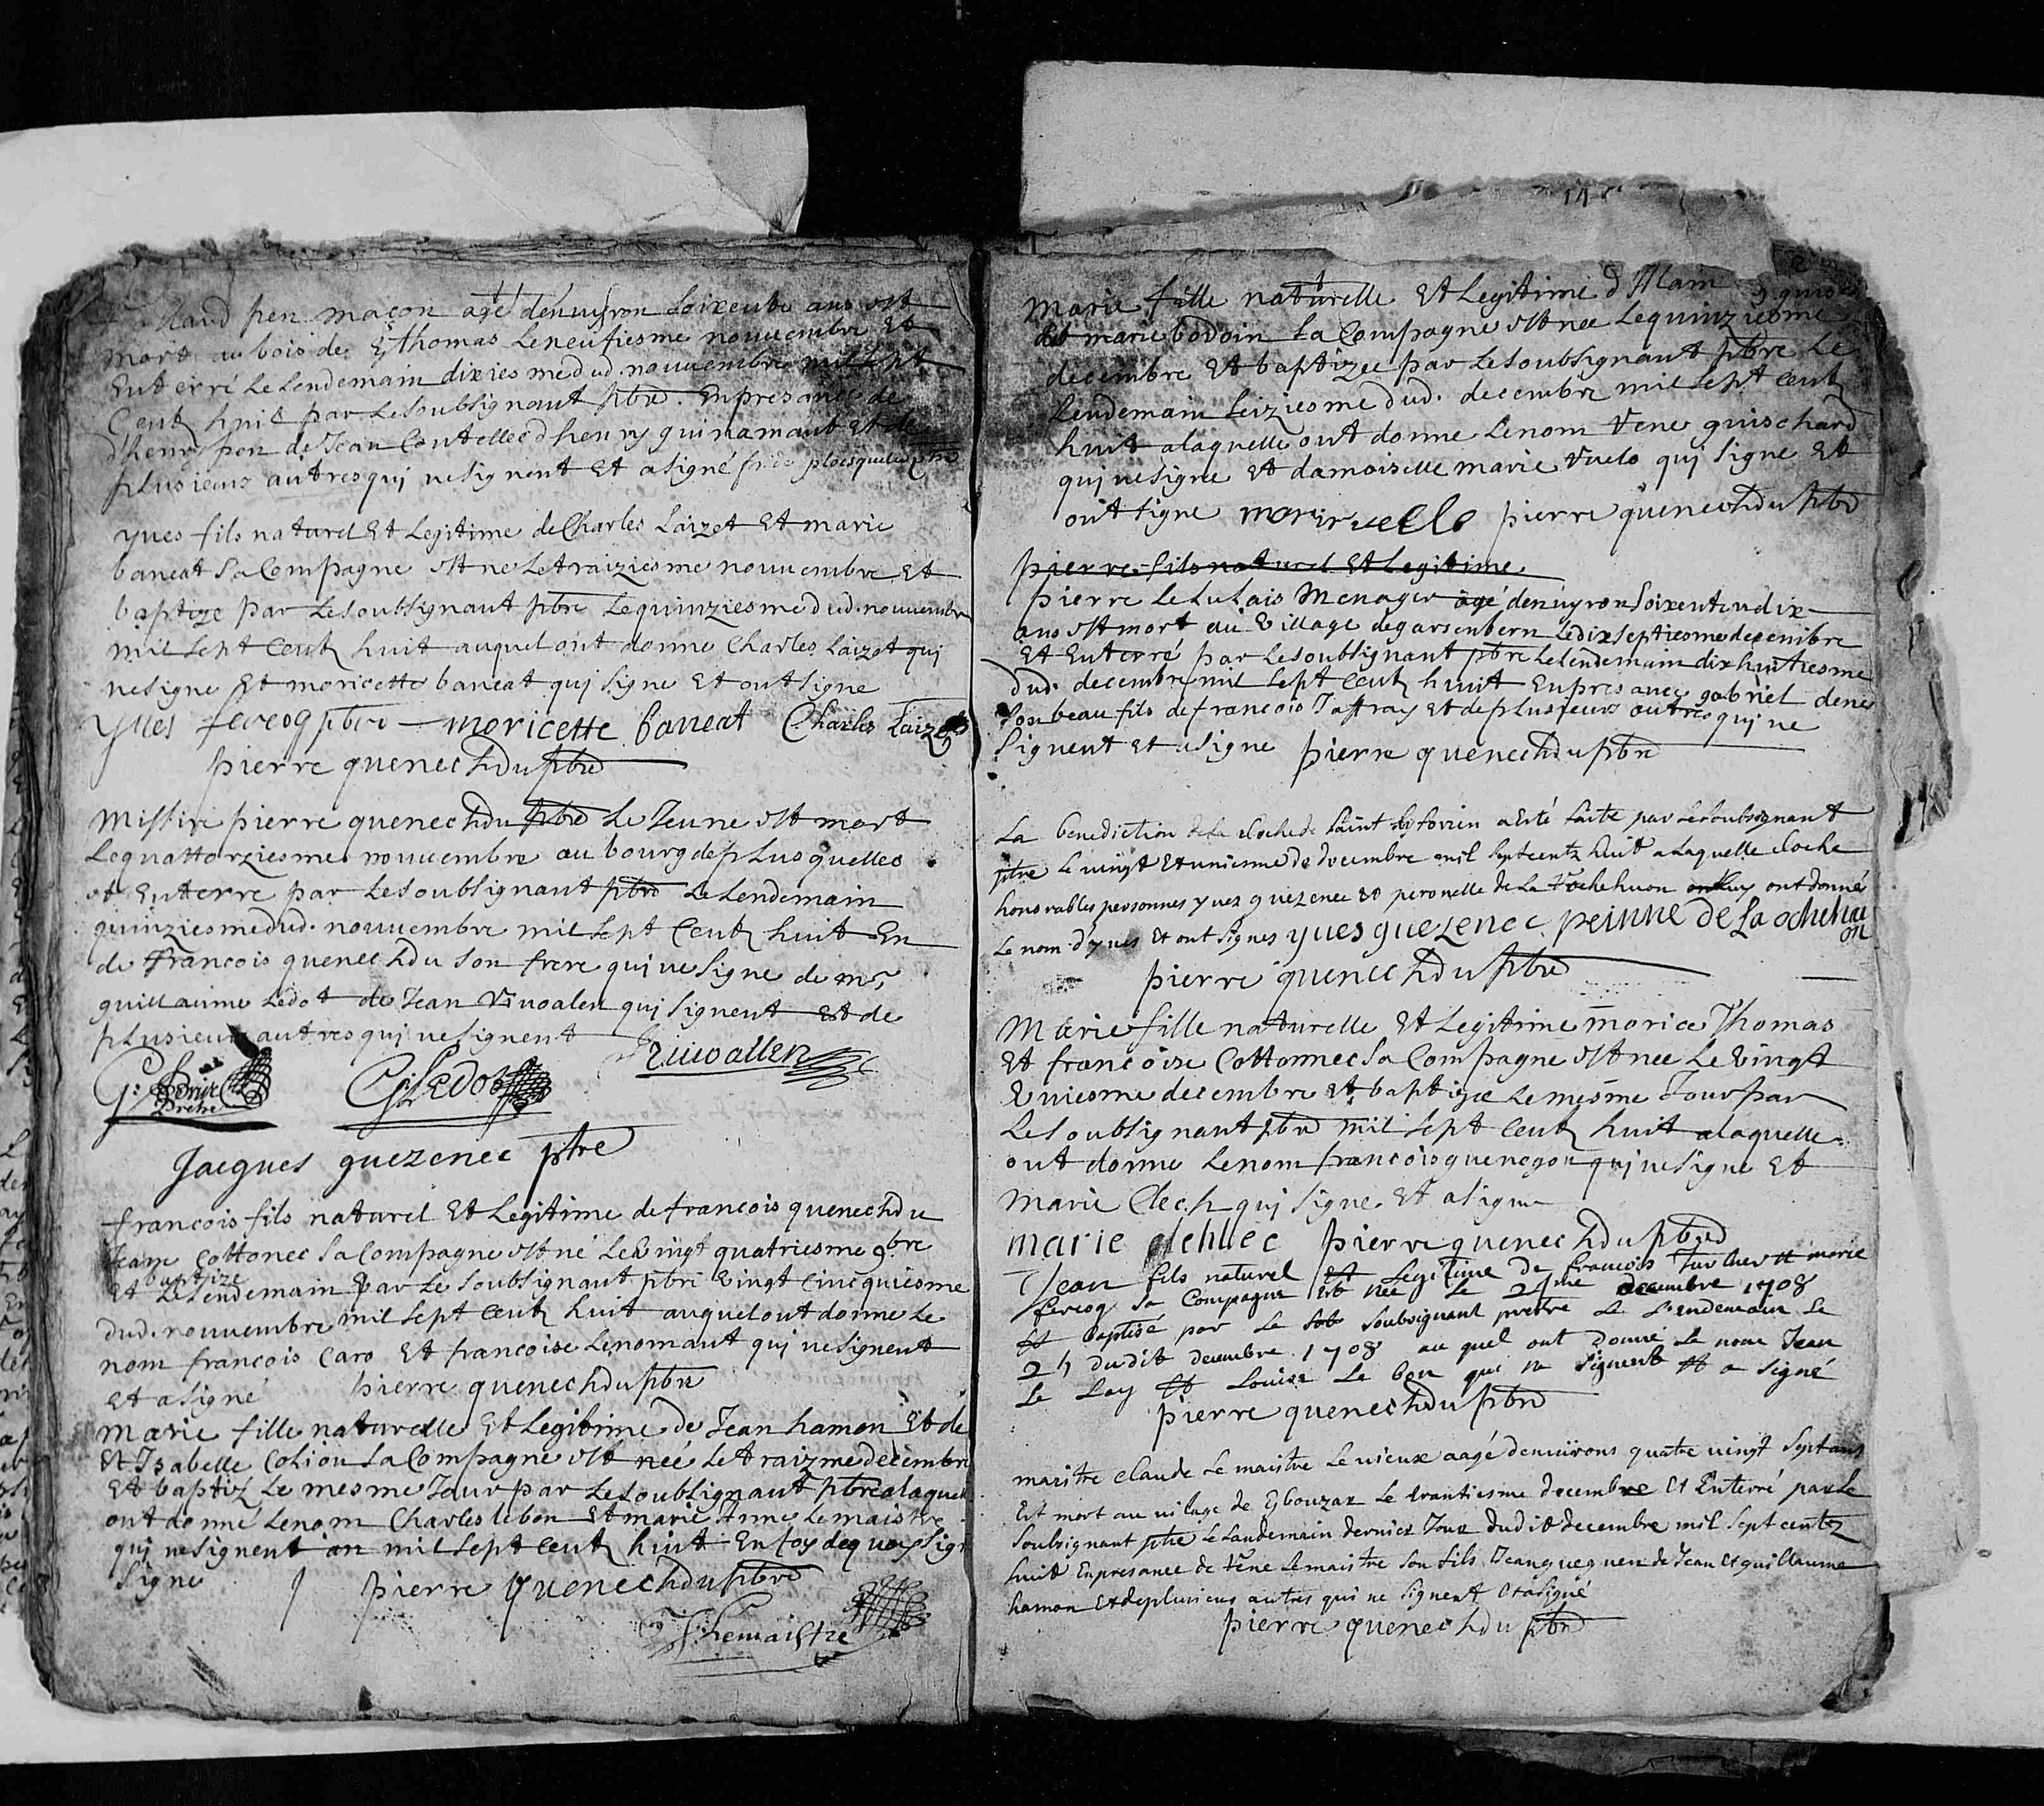 pen maçon agé denuyron soixente ans est
mort au bois de thomas le neufiesme nouuembre et
enterré le lendemain dixiesme dud. nouuembre mil sept
centz huit par le soubsignant pbre. en presance de
d'henry pen de Jean coutellec d'henry guinamant et de
plusieurs autres qui ne signent et a signé
yues fils naturel et legitime de Charles Laizet et marie
baneat sa compagne est ne le traiziesme nouuembre et
baptize par le soubsignant pbre le quinziesme dud. nouuembre
mil sept centz huit auquel ont donne Charles Laizet qui
ne signe et moricette baneat qui signe et ont signe
yues fercoq pbre moricette baneat Charles Laizet
pierre quenechdu pbre
Missire pierre quenechdu pbre le Jeune est mort
le quattorziesme nouuembre au bourg de plusquellec
et enterre par le soubsignant pbre le lendemain
quinziesme dud. nouuembre mil sept centz huit en
de françois quenechdu son frere qui ne signe de mre
guillaume Ledot de Jean qui signent et de
plusieurs autres qui ne signent
G: pretre G. Ledot
Jacques guezenec ptre
francois fils naturel et legitime de francois quenechdu
Jeane cottonec sa compagne est né le vingt quatriesme 9bre
baptize
et le lendemain par le soubsignant pbre vingt cincquiesme
dud. nouuembre mil sept centz huit auquel ont donne le
nom francois caro et francoise lenomant qui ne signent
et a signé pierre quenechdu pbre
Marie fille naturelle et legitime de Jean hamon et de
et Isabelle coliou sa compagne est née le traizme decembre
et baptiz le mesme Jour par le soubsignant pbre a laquel
ont donné le nom Charles lebon et marie Anne le maistre
qui ne signent an mil sept centz huit en foy de quoy sig
signe pierre quenechdu pbre
Lemaistre
14
Marie fille naturelle et legitime d'Alain
et marie bodoin sa compagne est nee le quinziesme
decembre et baptizee par le soubsignant pbre le
lendemain seiziesme dud. decembre mil sept centz
huit a laquelle ont donne le nom rene guischard
qui ne signe et damoiselle marie ruelo qui signe et
ont signe pierre quenechdu pbre
pierre fils naturel et legitime
pierre le lulais menager agé denuyron soixente et dix
ans est mort au village de garsenbern le dix septiesme decembre
et enterré par le soubsignant pbre le lendemain dix huitiesme
dud. decembre mil sept centz huit en presance gabriel denes
son beau fils de francois Jaffray et de plusieurs autres qui ne
signent et a signe pierre quenechdu pbre
La benediction de la cloche de saint a esté faite par le soubsignant
ptre le vingt et uniesme de decembre mil sept centz huit a laquelle cloche
honorables personnes yues guezenec et peronelle de la rochehuon ont donné
le nom d'yues et ont signes yues guezenec. peinne de la ochehu
on
pierre quenechdu pbre
Marie fille naturelle et legitime morice Thomas
et francoise cottonnec sa compagne est nee le vingt
uniesme decembre et baptizee le mesme Jour par
le soubsignant pbre mil sept centz huit a laquelle
ont donne le nom francois guenegou qui ne signe et
marie qui signe et a signe
marie pierre quenechdu pbre
Jean fils naturel et legitime de francois et marie
fercoq sa compagne est née le decembre 1708
et baptisé par le soubsignant prettre le lendemain le
dudit decembre 1708 au quel ont donné le nom Jean
le Lay et Louise le bon qui ne signent et a signé
pierre quenechdu pbre
maistre claude le maistre le vieux aagé denuirons quatre vingt sept ans
est mort au vilage de le trantiesme decembre et enterré par le
soubsignant ptre le landemain dernier Jour dudit decembre mil sept centz
huit en presance de rene le maistre son fils Jean gueguen de Jean et guillaume
hamon et de plusieurs autres qui ne signent et a signé
pierre quenechdu pbre